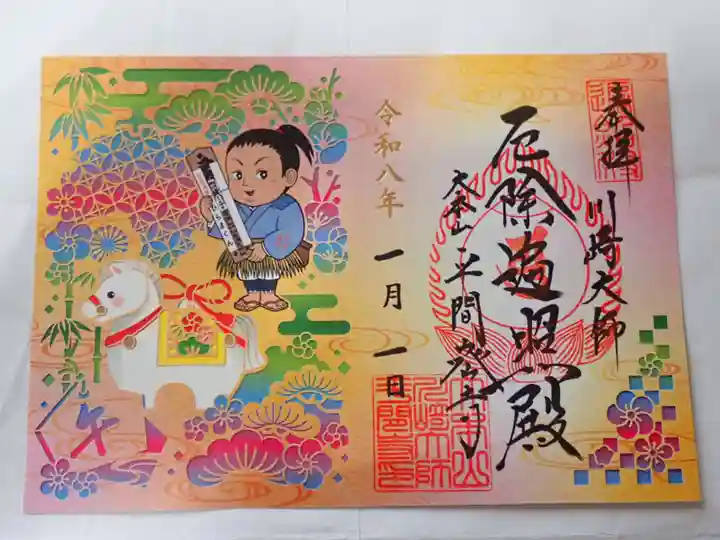 奉拝
川崎大師
厄除遍照殿
大本山
平間寺
令和八年
一月一日
午